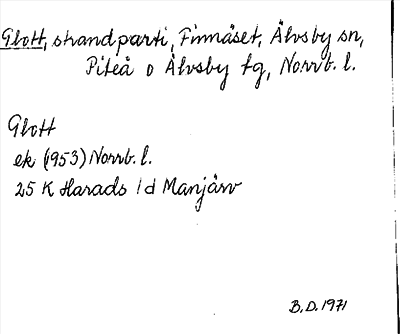 Glott, strandparti, Finnäset, Älvsby sn,
Piteå o Älvsby tg, Norrb. l.
Glott
ek (953) Norrb. l.
25 K Harads 1 d Manjärv
B.D. 1971